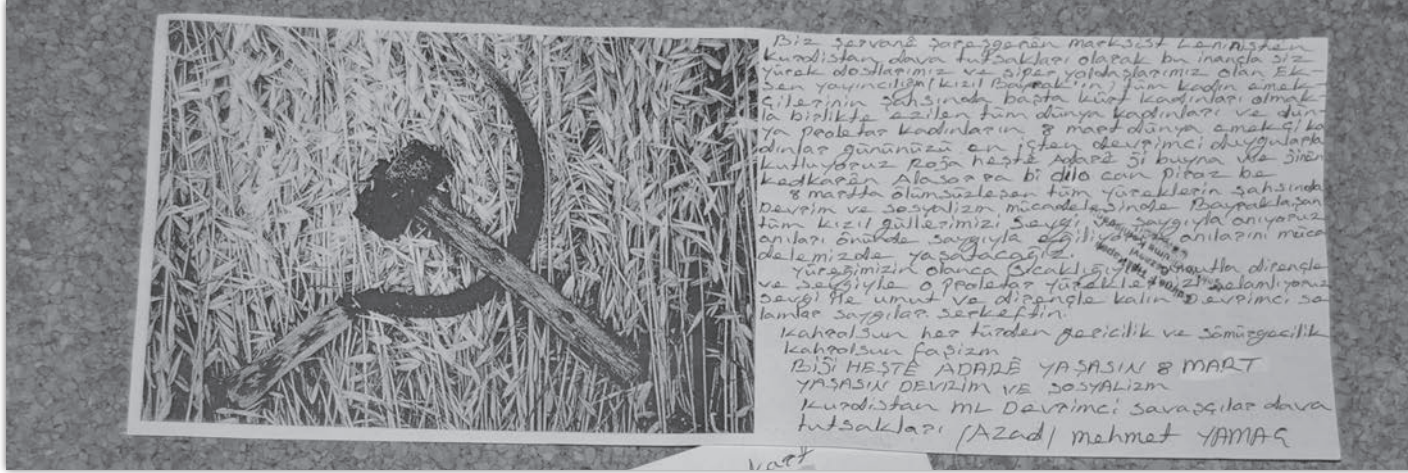 Biz şervanê şoreşgerên marksist Leninisten
kurdistan dava tutsakları olarak bu inançla siz
yürek dostlarımız ve siper yoldaşlarımız olan Ek-
sen yayıncılığın/kızıl Bayrak'ın/tüm kadın emek-
çilerinin şahsında başta kürt kadınları olmak-
la birlikte ezilen tüm dünya kadınları ve dün-
ya proletar kadınların 8 mart dünya emekçi ka
dınlar gününüzü en içten devrimci duygularla
kutluyoruz Roja heştê Adarê Ji buyna we Jinên
kedkarên Alasorra bi dilo can piroz be
8 martta ölümsüzleşen tüm yüreklerin şahsında
Devrim ve sosyalizm mücadelesinde Bayraklaşan
tüm kızıl güllerimizi sevgi ve saygıyla anıyoruz
anıları önünde saygıyla eğiliyoruz anılarını müca
delemizde yaşatacağız.
yüreğimizin olanca sıcaklığıyla umutla dirençle
ve sevgiyle o proletar yüreklerinizi selamlıyoruz
sevgi ile umut ve dirençle kalın Devrimci se-
lamlar saygılar serkeftin.
kahrolsun her türden gericilik ve sömürgecilik
kahrolsun faşizm
BIJİ HEŞTÊ ADARÊ YAŞASIN 8 MART
YAŞASIN DEVRİM VE SOSYALİZM
Kurdistan ML Devrimci savaşçılar dava
tutsakları (Azad) mehmet YAMAÇ
kart